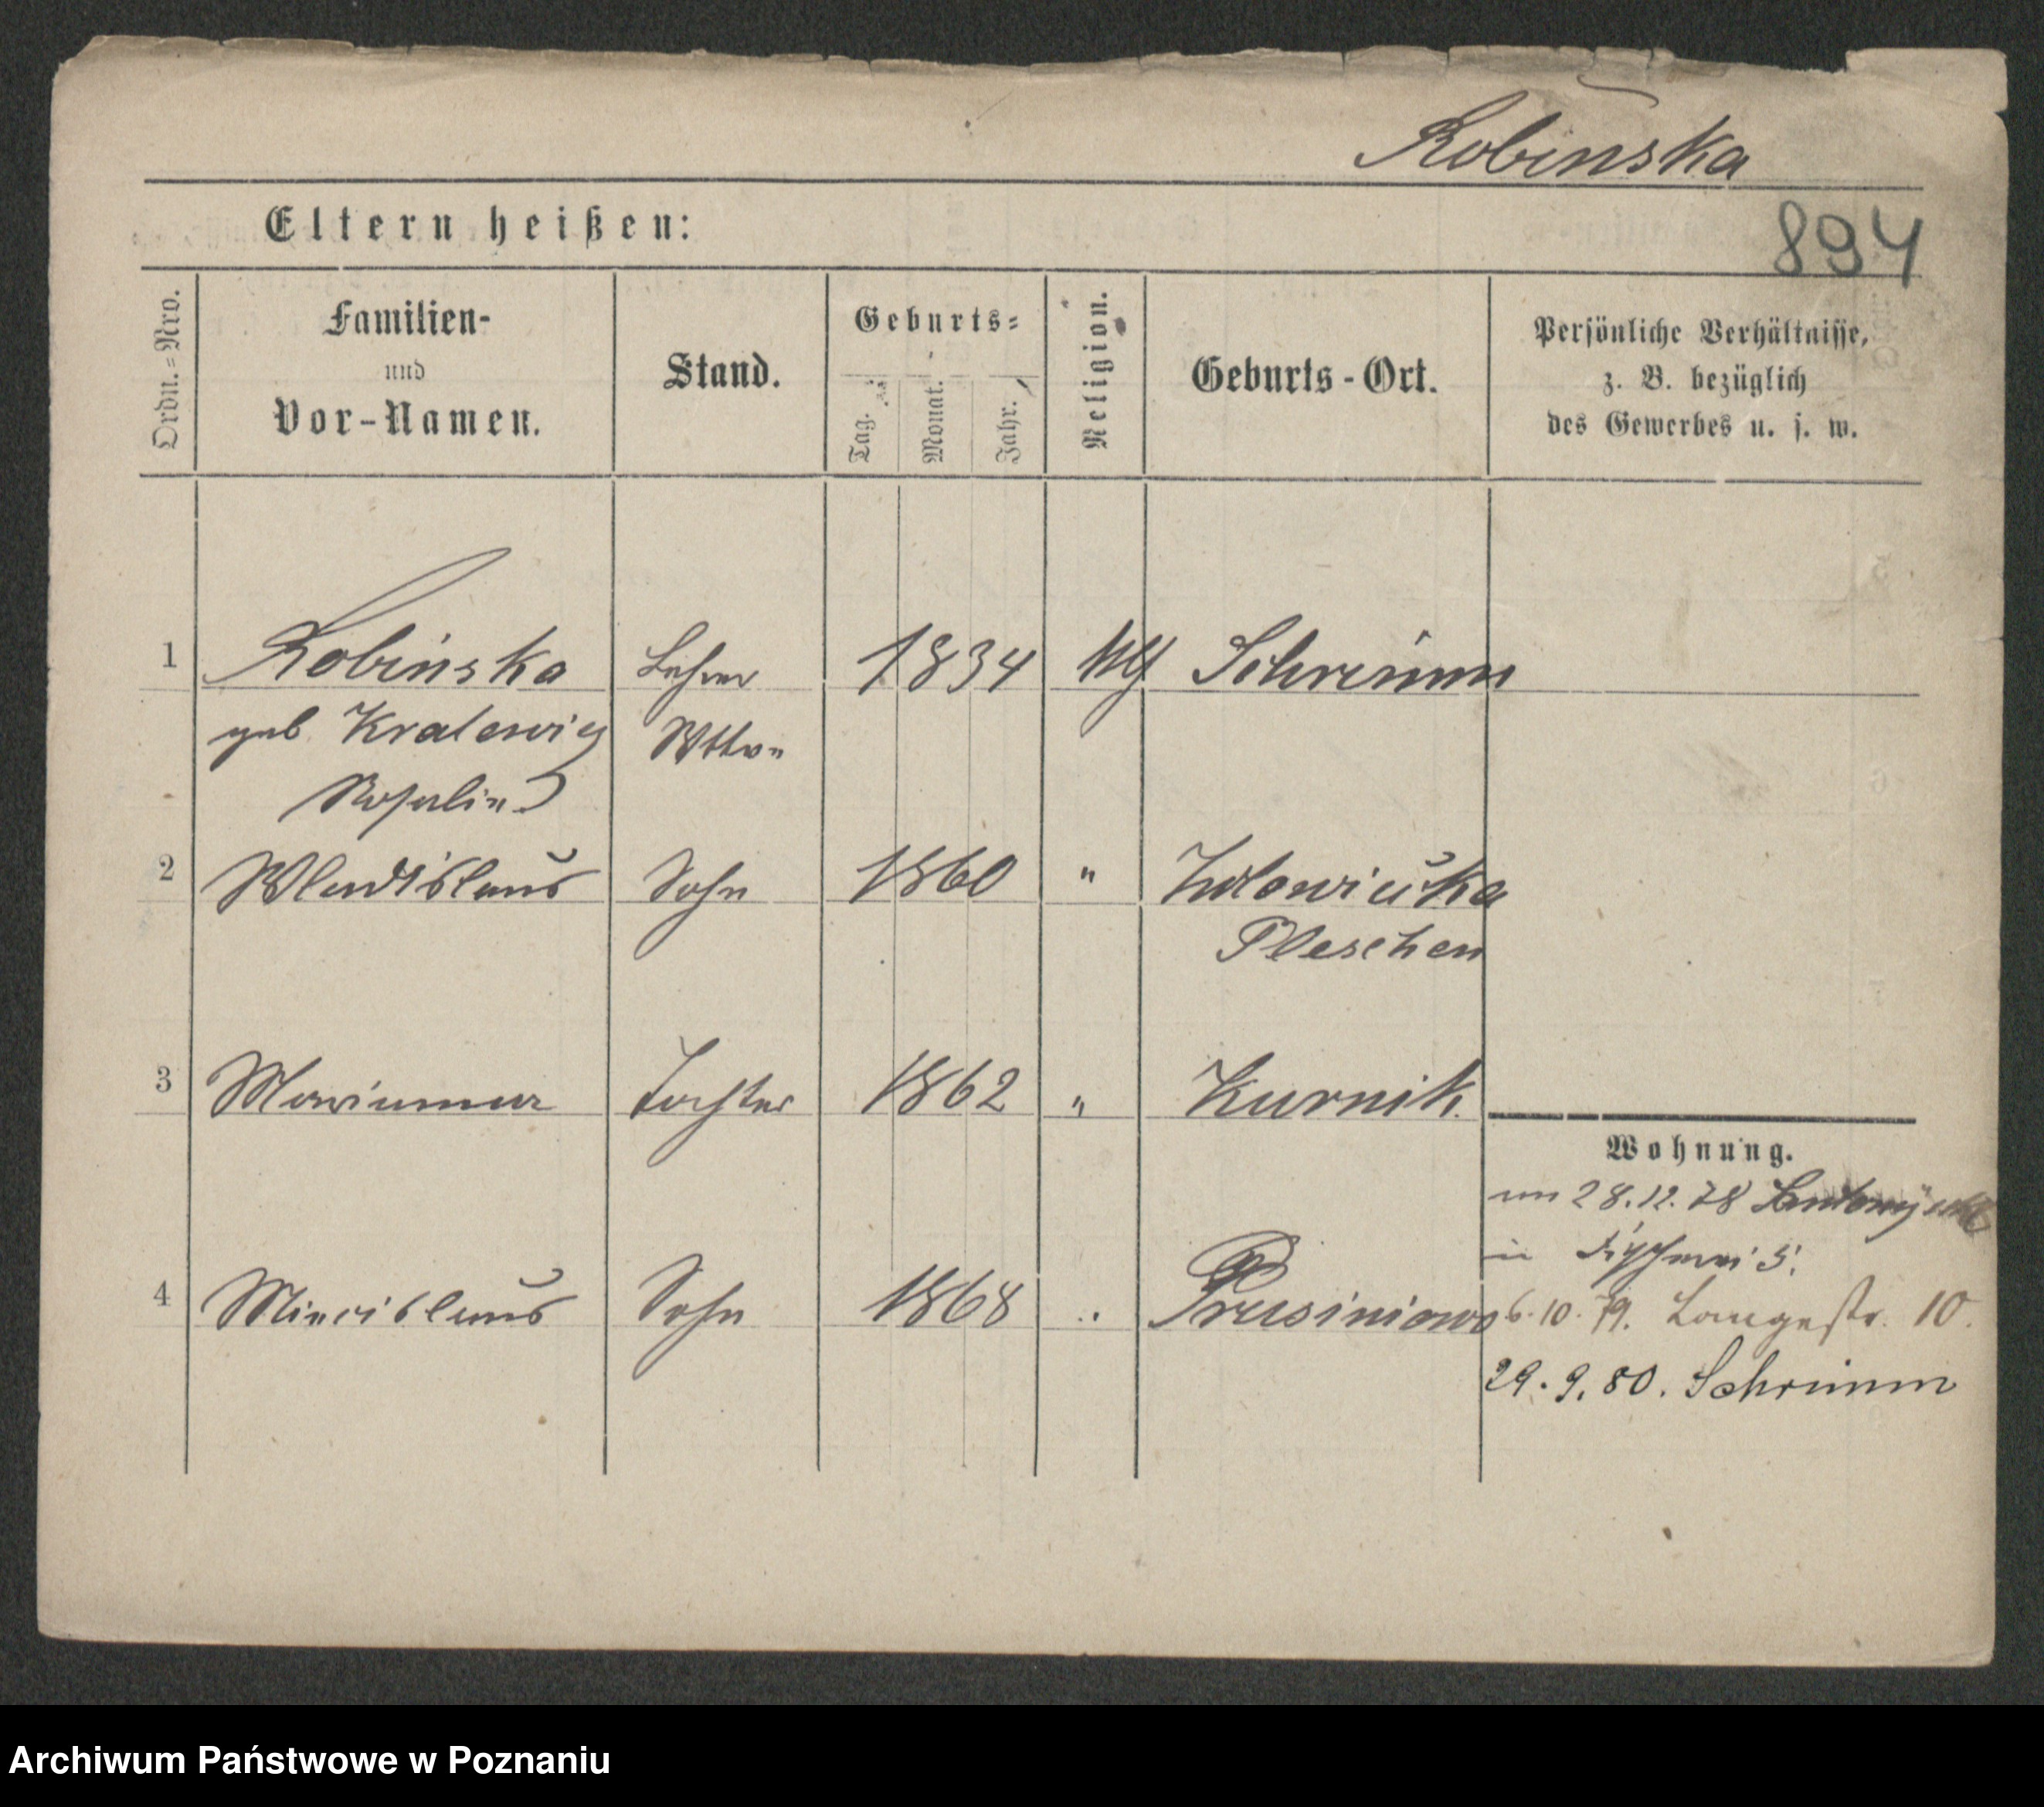 Robinska
Eltern heißen:
894
Ordn.=Nro.
Familien-
und
Vor-Namen.
Stand.
Geburts=
Tag.
Monat.
Jahr.
Religion.
Geburts-Ort.
Persönliche Verhältnisse,
z. B. bezüglich
des Gewerbes u. s. w.
1 Robinska Lehrer 1834 Schrimm
geb Wttwe
2 Wladislaus Sohn 1860 "
Pleschen
3 Marianna Tochter 1862 " Kurnik
Wohnung.
28.12.78
in
4 Miecislaus Sohn 1868 Prusinowo
6.10.79. Langestr. 10.
29.9.80. Schrimm
Archiwum Państwowe w Poznaniu